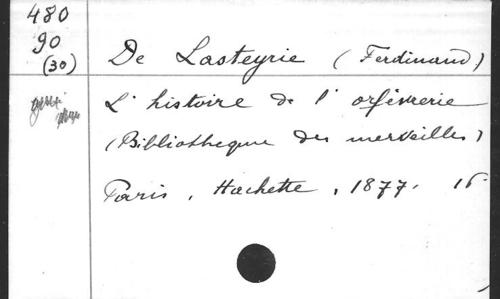 480
90
(30)
De Lasteyrie (Ferdinand)
L'histoire de l'orfèvrerie
(Bibliothèque des merveilles)
Paris, Hachette, 1877. 16